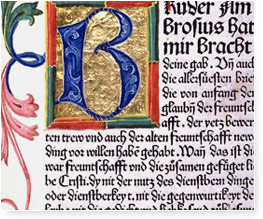 BRuder Am
brosius hat
mir bracht
deine gab. Vñ auch
die allersüesten brief
die von anfang der
glaubñ der freuntsch
afft. der yetz bewer
ten trew vnd auch der alten freuntschafft new
ding vor willen habẽ gehabt. Wañ das ist die
war freuntschafft vnd die zůsamen gefüget
be Cristi. dy nit der nutz des dienstbern dinge
oder dienstberkeyt. nit die gegenwurtikeyt der